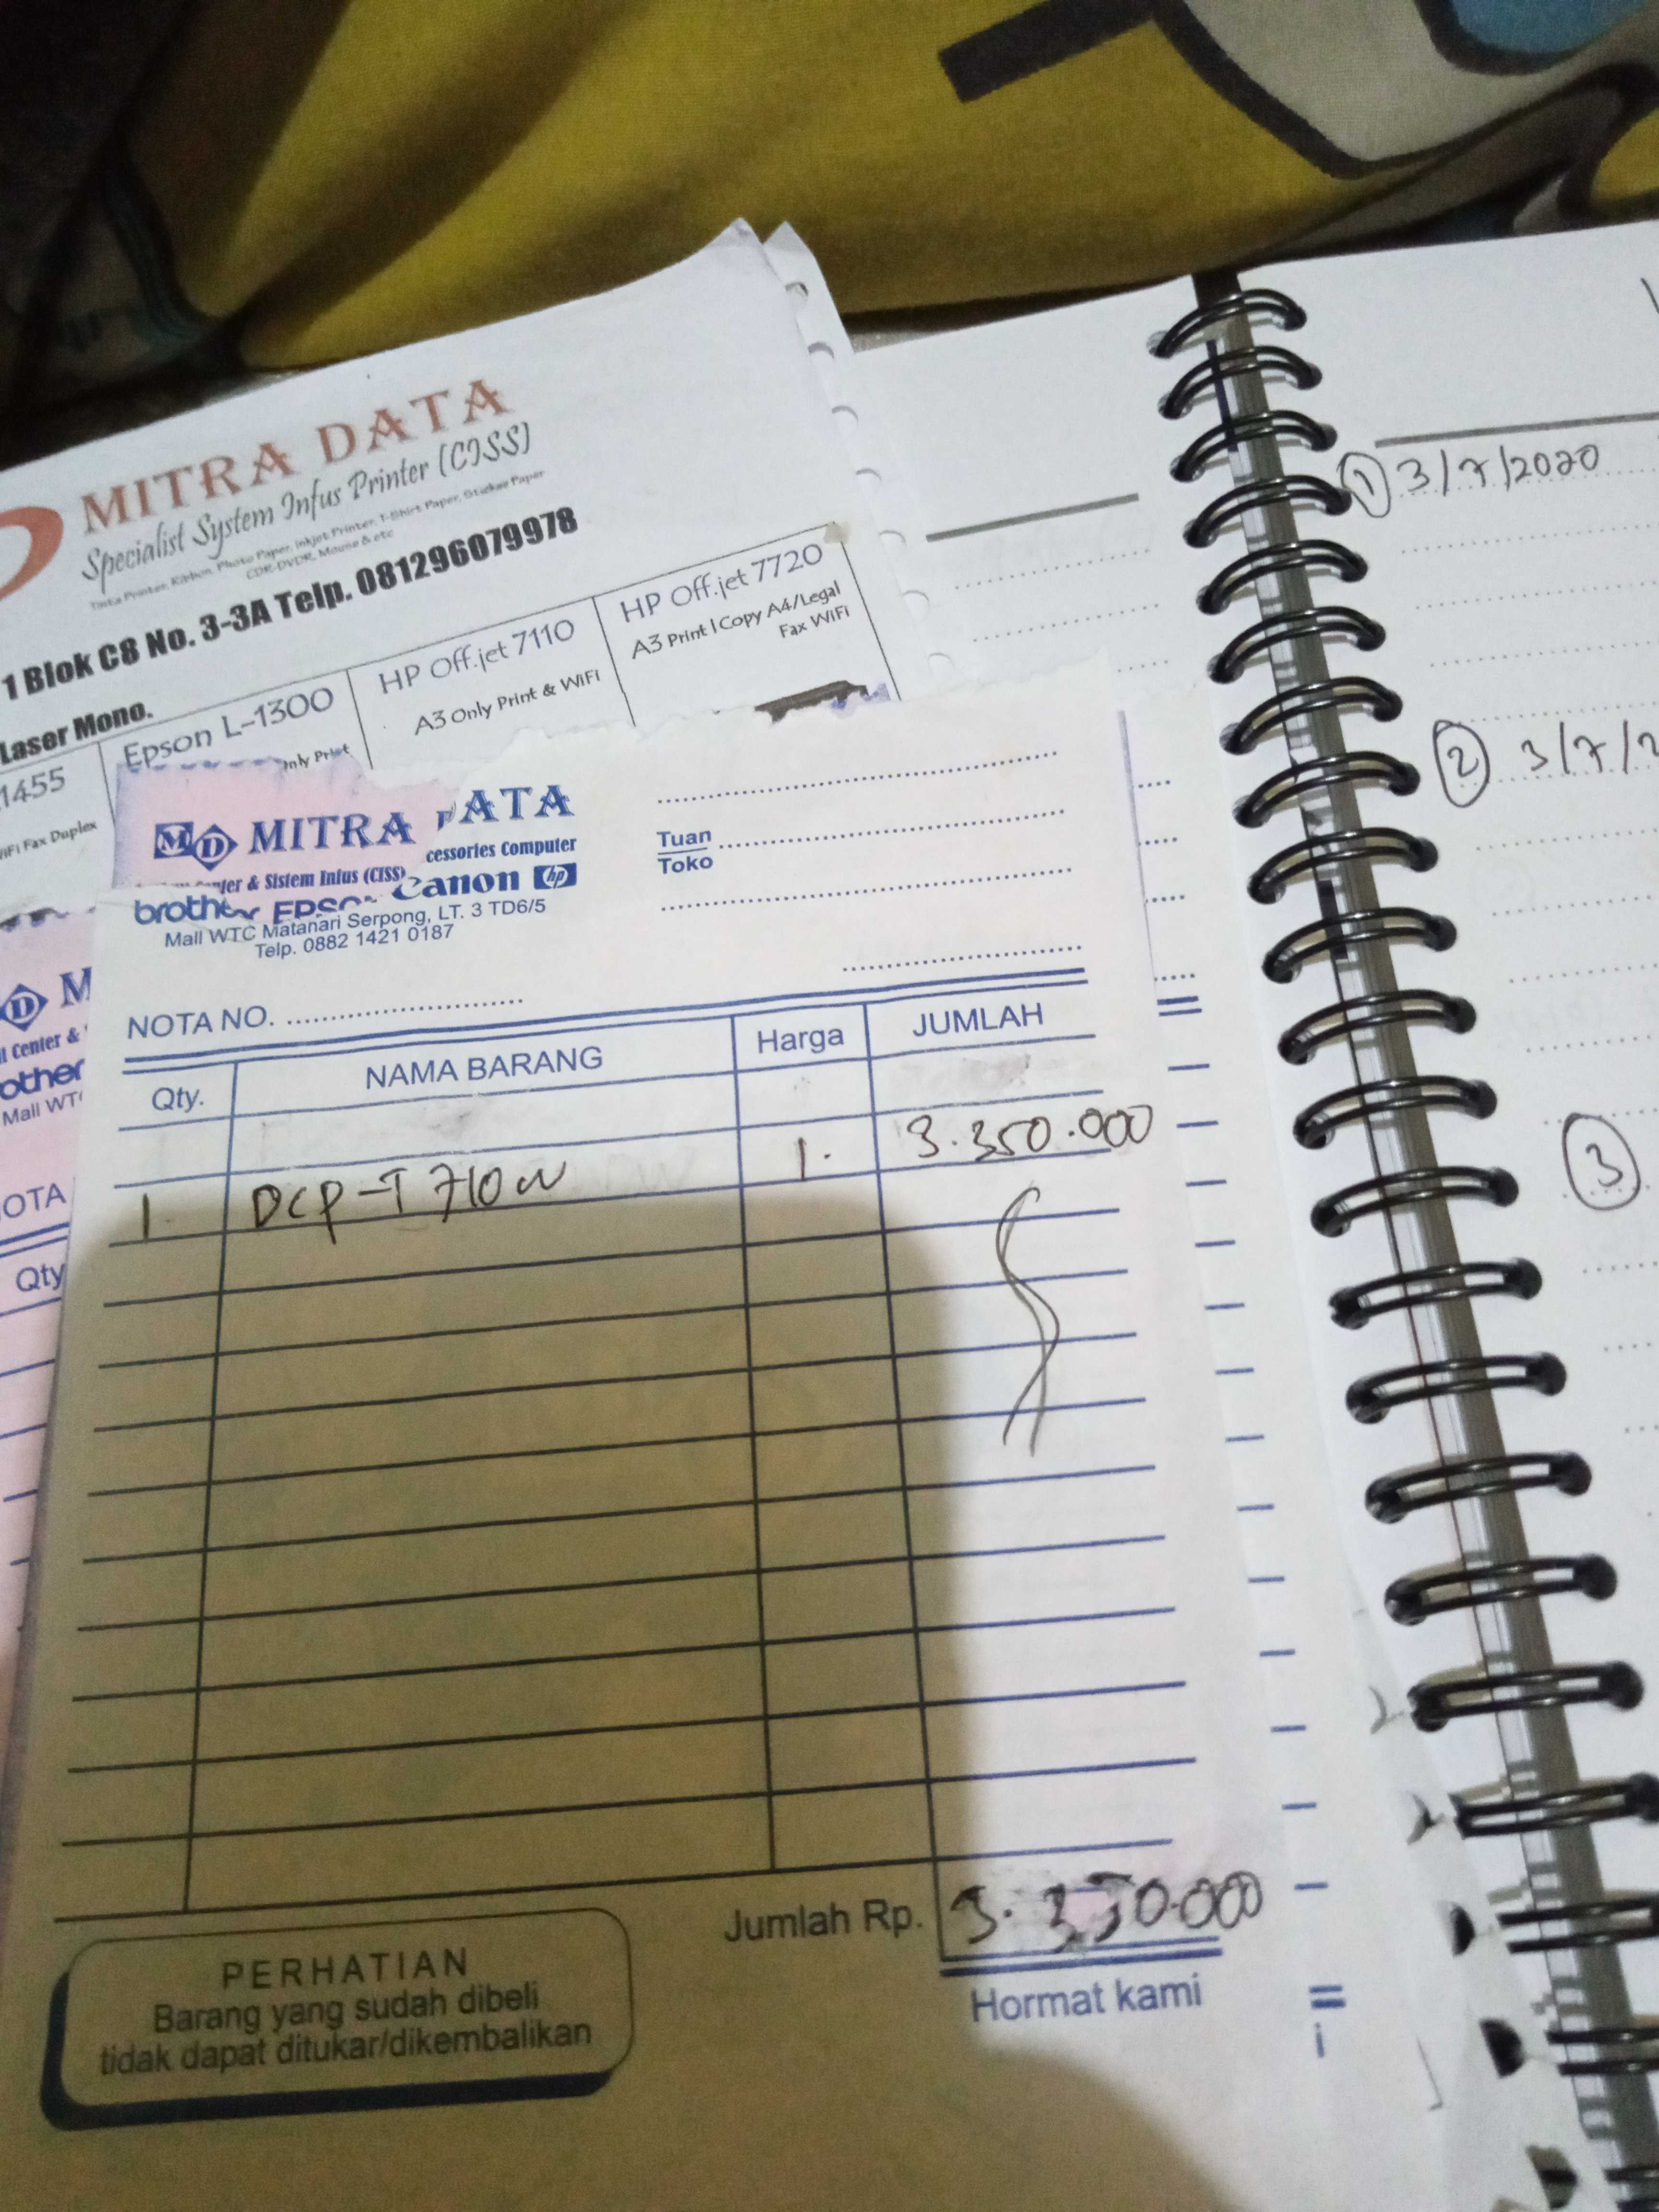 MITRA DATA
Specialist System Infus Printer (CISS)
Tinta Printer, Karbon, Photo Paper, Inkjet Printer, T-Shirt Paper, Sticker Paper
CDR-DVDR, Mouse & etc
1 Blok C8 No. 3-3A Telp. 081296079978
Laser Mono.
1455
WiFi Fax Duplex
Epson L-1300
Only Print
HP Off.jet 7110
A3 Only Print & WiFi
HP Off.jet 7720
A3 Print | Copy A4/Legal
Fax WiFi
MD MITRA DATA
cessories Computer
nter & Sistem Infus (CISS)
brother EPSON Canon hp
Mall WTC Matanari Serpong, LT. 3 TD6/5
Telp. 0882 1421 0187
Tuan
Toko
NOTA NO.
Qty. NAMA BARANG Harga JUMLAH
1. DCP-T 710W 1. 3.350.000
Jumlah Rp. 3.350.000
PERHATIAN
Barang yang sudah dibeli
tidak dapat ditukar/dikembalikan
Hormat kami
D M
t Center &
other
Mall WT
OTA
Qty
① 3/7/2020
② 3/7/2
③